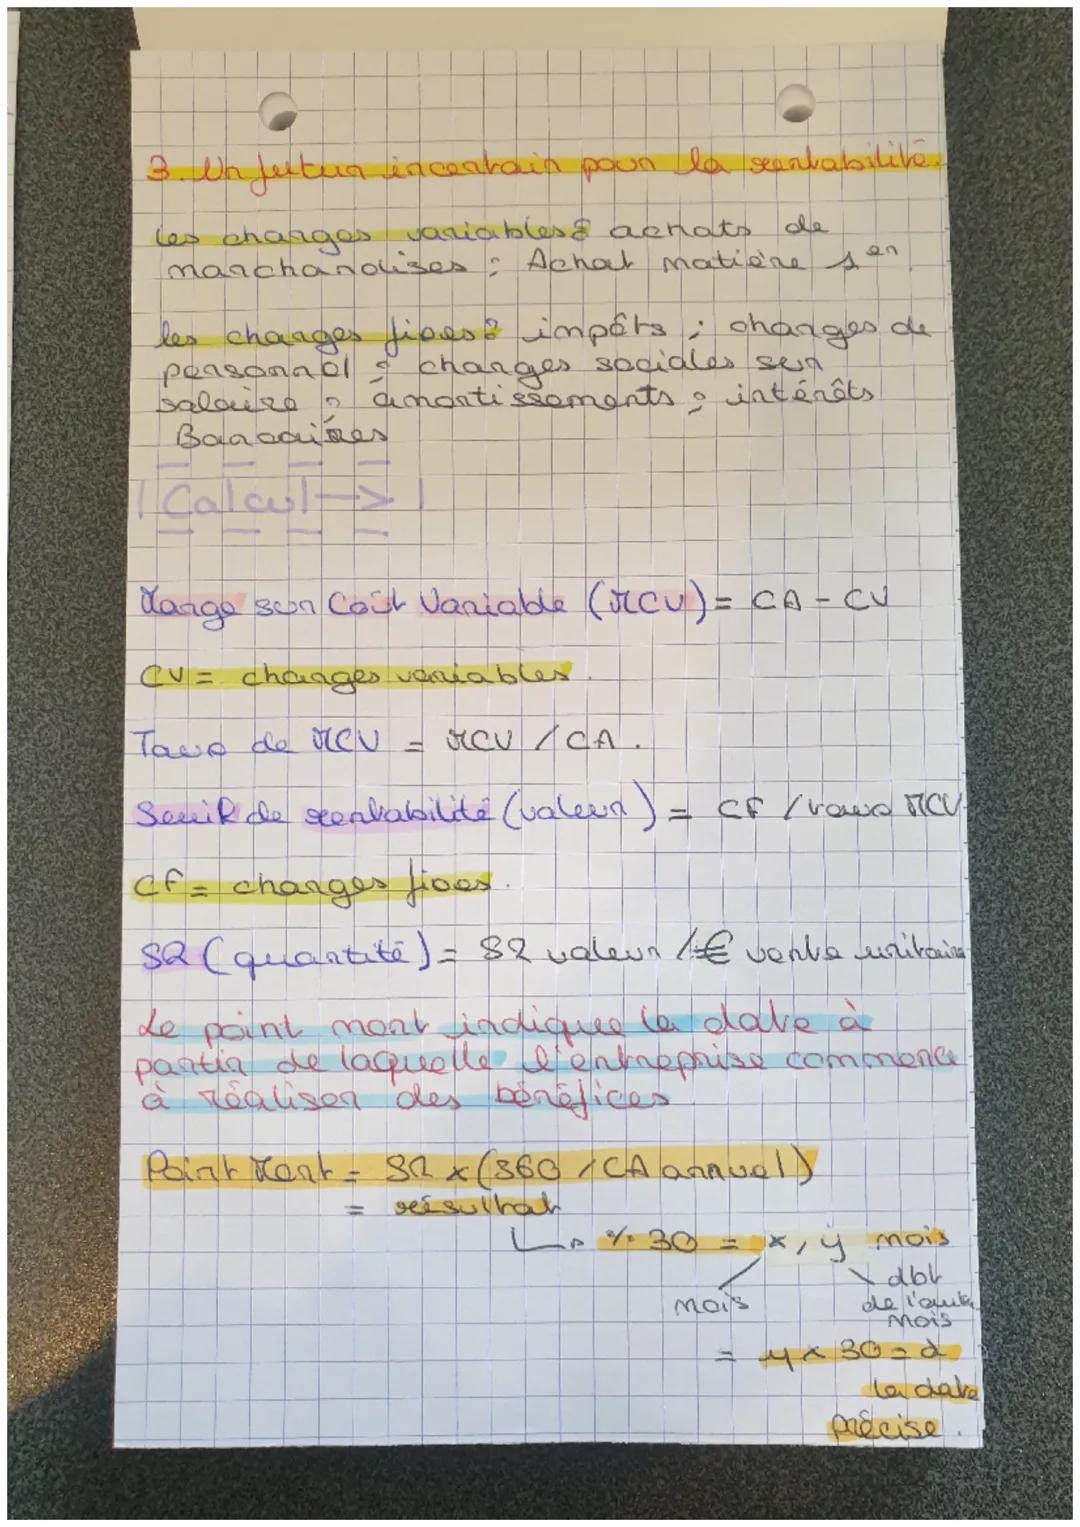 3. Un futur incertain pour la rentabilité.
les charges variables : achats de
marchandises ; Achat matière 1er
les charges fixes : impôts ; charges de
personnel ; charges sociales sur
salaire ; amortissements ; intérêts
Bancaires
Calcul →
Marge sur Coût Variable (MCV) = CA - CV
CV = charges variables.
Taux de MCV = MCV / CA.
Seuil de rentabilité (valeur) = CF / taux MCV
CF = charges fixes.
SR (quantité) = SR valeur / € vente unitaire
Le point mort indique la date à
partir de laquelle l'entreprise commence
à réaliser des bénéfices
Point Mort = SR x (360 / CA annuel)
= résultat
↳ % 30 = x, y mois
mois dbt
de l'autre
mois
= y x 30 = d
la date
précise.